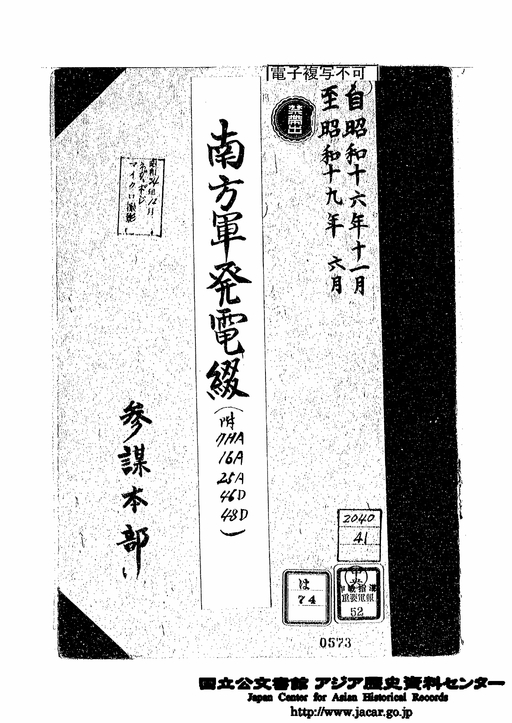 電子複写不可
自昭和十六年十一月
至昭和十九年 六月
禁帯出
南方軍発電綴
(附
7HA
16A
25A
46D
48D
)
マイクロ撮影
参謀本部
2040
41
は
74
重要電報
52
0573
国立公文書館 アジア歴史資料センター
Japan Center for Asian Historical Records
http://www.jacar.go.jp